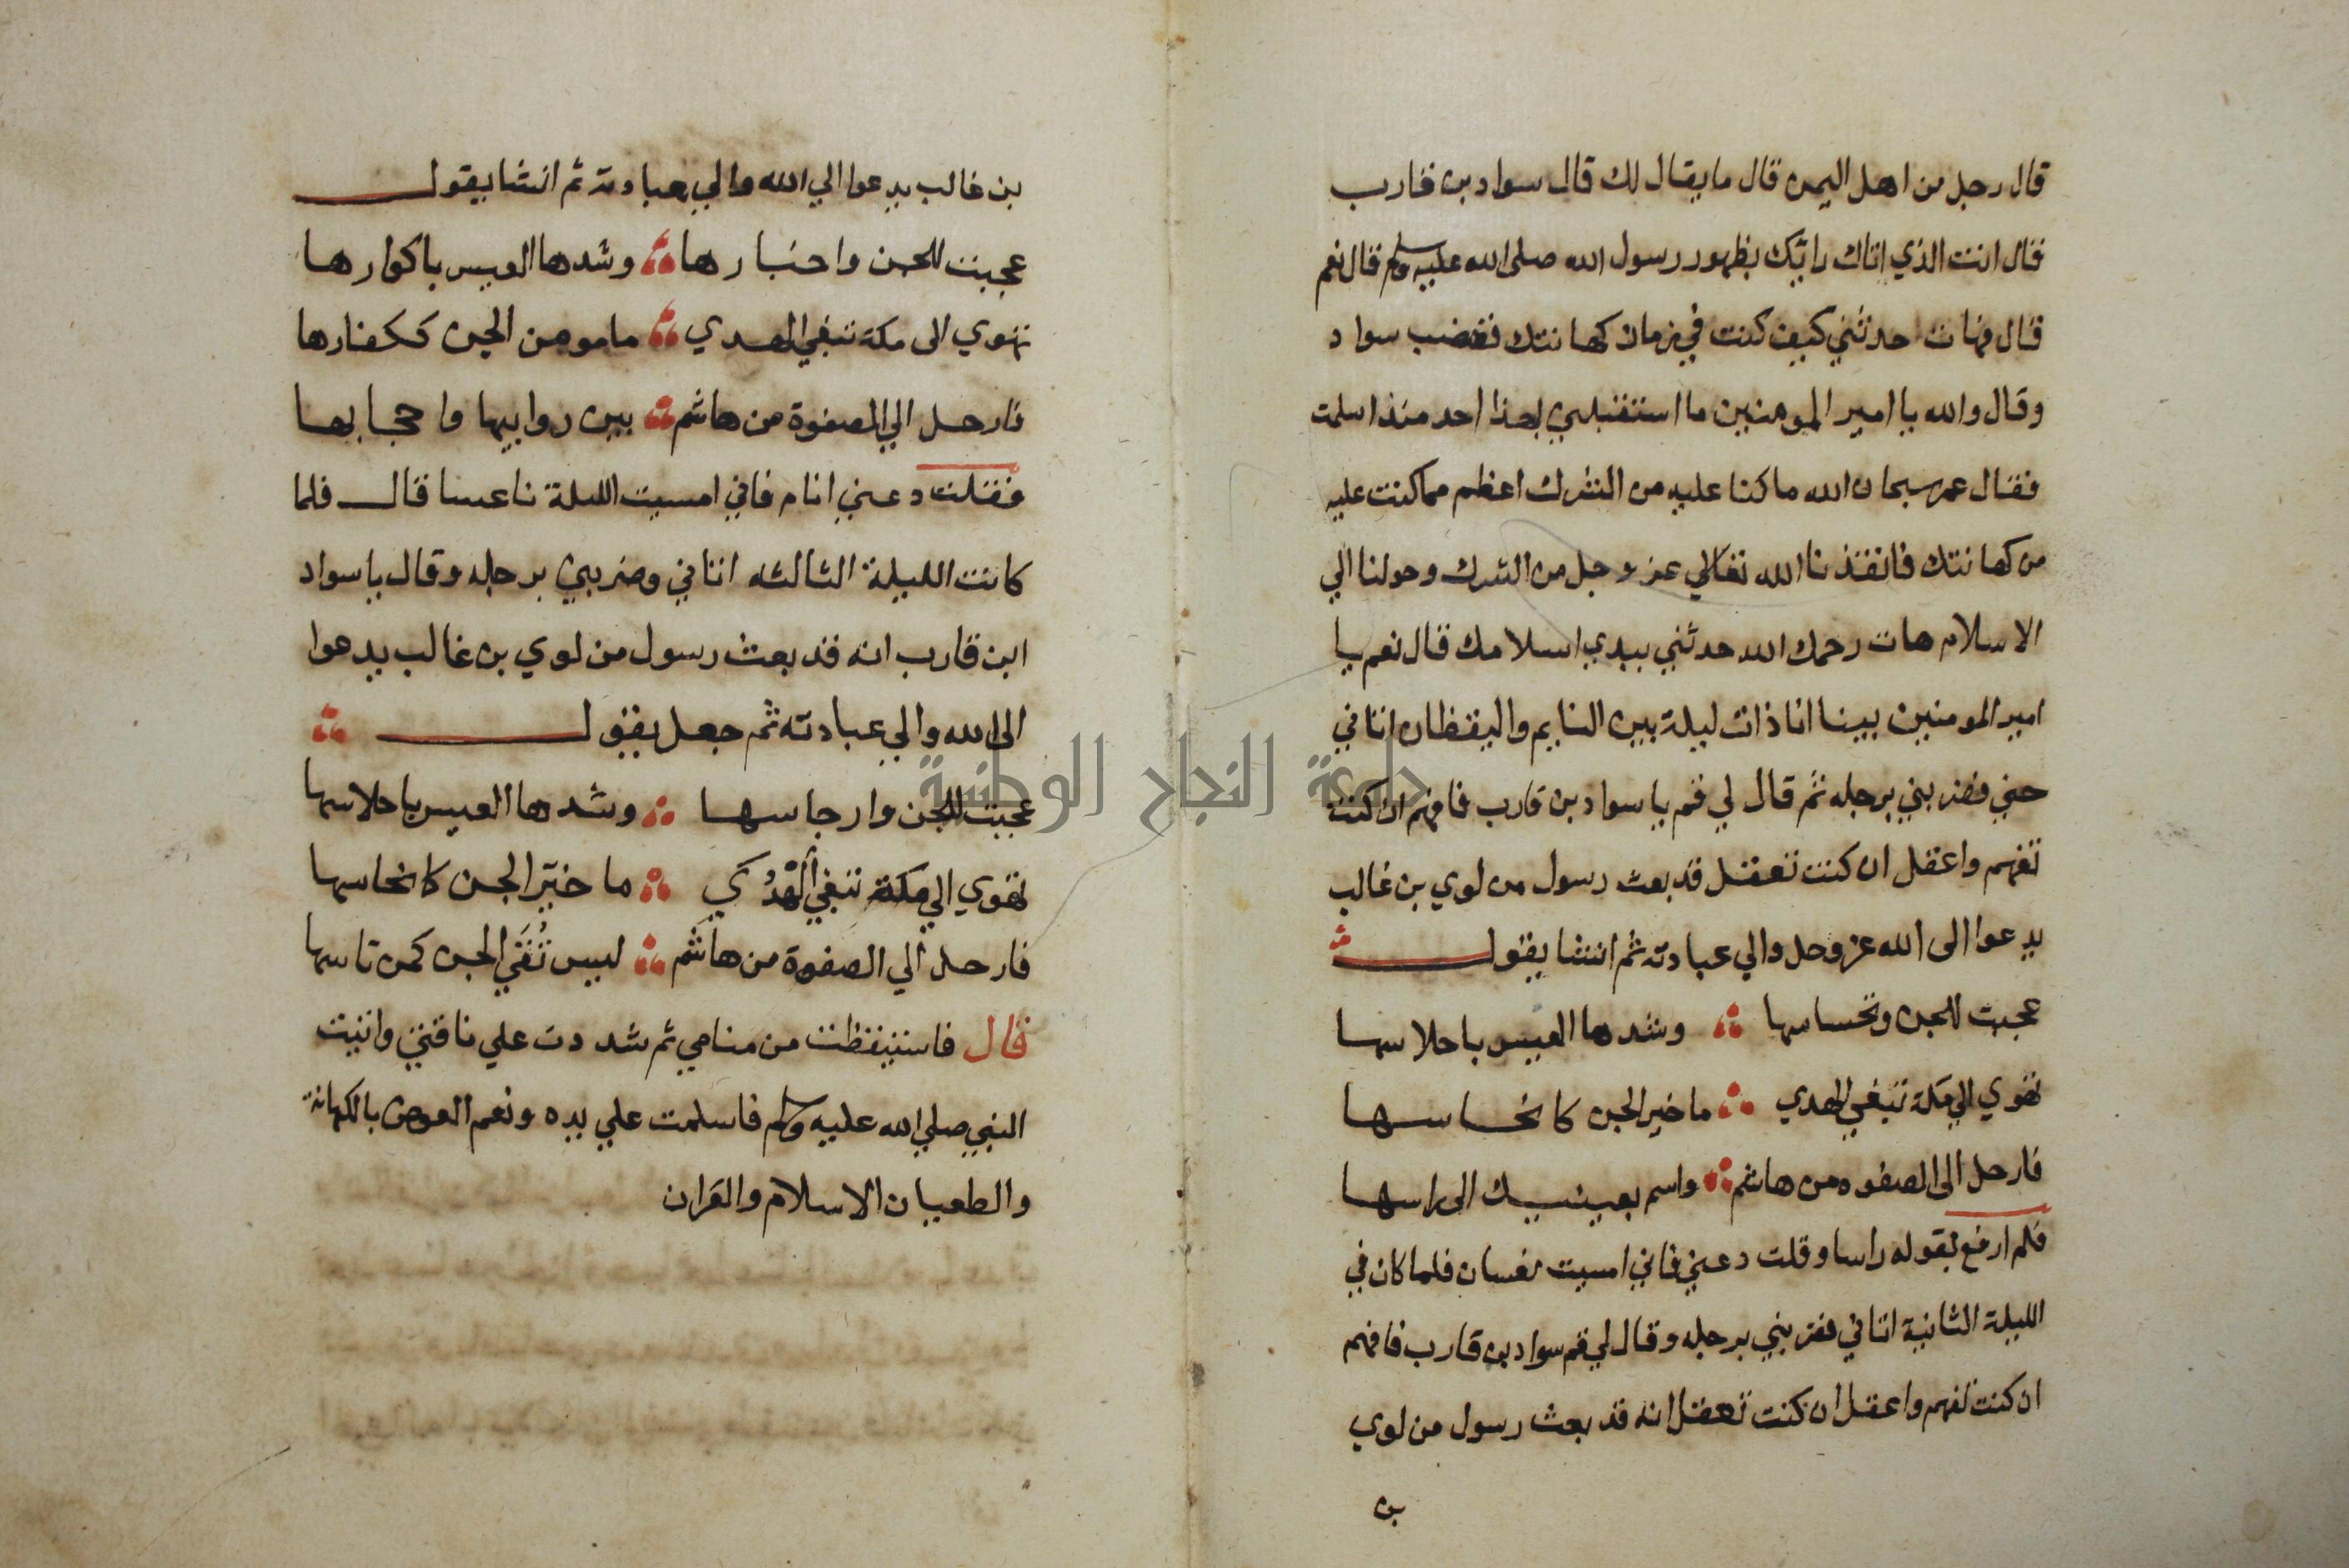 قال رجل من اهل اليمن قال ما يقال لك قال سواد بن قارب
فقال انت الذي اتاك رائيك بظهور رسول الله صلى الله عليه وسلم قال نعم
قال فهات حدثني كيف كنت في زمان كهانتك فغضب سواد
وقال والله يا امير المومنين ما استقبلني بهذا احد منذ اسلمت
فقال عمر سبحان الله ما كنا عليه من الشرك اعظم مما كنت عليه
من كهانتك فانقذنا الله تعالي عز وجل من الشرك وحولنا الي
الاسلام هات رحمك الله حدثني ببدي اسلامك قال نعم يا
امير المومنين بينا انا ذات ليلة بين النايم واليقظان اتاني
جني فضربني برجله ثم قال لي قم يا سواد بن قارب فافهم ان كنت
تفهم واعقل ان كنت تعقل قد بعث رسول من لوي بن غالب
يدعوا الى الله عز وجل والي عبادته ثم انشا يقول
عجبت للجن وتحساسها وشدها العيس باحلاسها
تهوي الي مكة تبغي الهدي ما خير الجن كانحاسها
فارحل الى الصفوه من هاشم واسم بعينيك الى راسها
فلم ارفع بقوله راسا وقلت دعني فاني امسيت نعسان فلما كان في
الليلة الثانية اتاني فضربني برجله وقال لي قم سواد بن قارب فافهم
ان كنت تفهم واعقل ان كنت تعقل انه قد بعث رسول من لوي
بن
بن غالب يدعوا الي الله والي عبادته ثم انشا يقول
عجبت للجن واخبارها وشدها العيس باكوارها
تهوي الى مكة تبغي الهدي ما مومن الجن ككفارها
فارحل الي الصفوة من هاشم بين روابيها واحجابها
فقلت دعني انام فاني امسيت الليلة ناعسا قال فلما
كانت الليلة الثالثه اتاني وضربني برجله وقال يا سواد
ابن قارب انه قد بعث رسول من لوي بن غالب يدعوا
الى الله والي عبادته ثم جعل يقول
عجبت للجن وارجاسها وشدها العيس باحلاسها
تهوي الي مكة تبغي الهدي ما خير الجن كانحاسها
فارحل الي الصفوة من هاشم ليس تقي الجن كمن تاسها
قال فاستيقظت من منامي ثم شددت علي ناقتي واتيت
النبي صلي الله عليه وسلم فاسلمت علي يده ونعم العوض بالكهانة
والطغيان الاسلام والقران
جامعة النجاح الوطنية